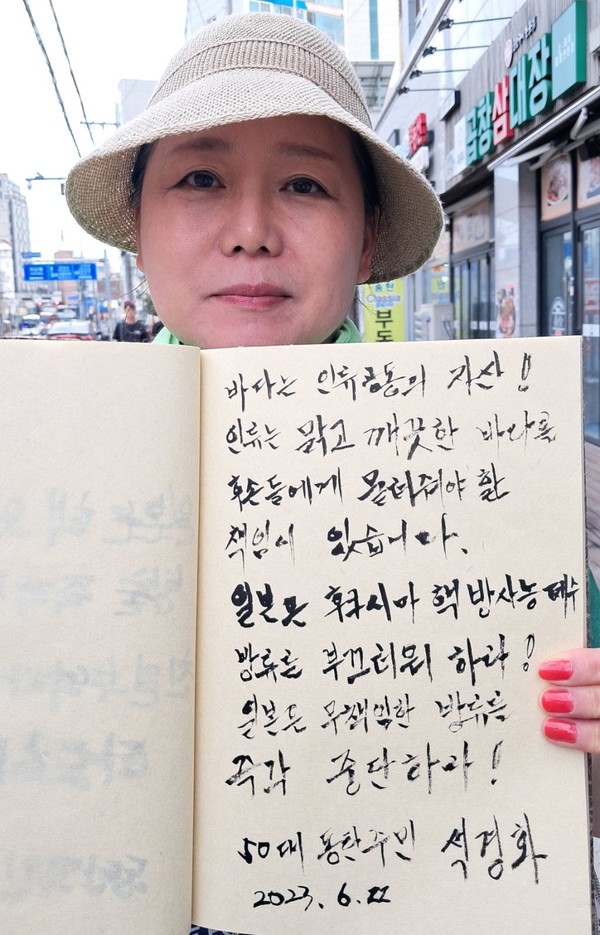 곱창삼대장
송탄
Classia
부동
바다는 인류공동의 자산!!
인류는 맑고 깨끗한 바다를
후손들에게 물려줘야 할
책임이 있습니다.
일본은 후쿠시마 핵 방사능 폐수
방류를 부끄러워 하라!
일본은 무책임한 방류를
즉각 중단하라!
50대 동탄주민 석경화
2023. 6. 22